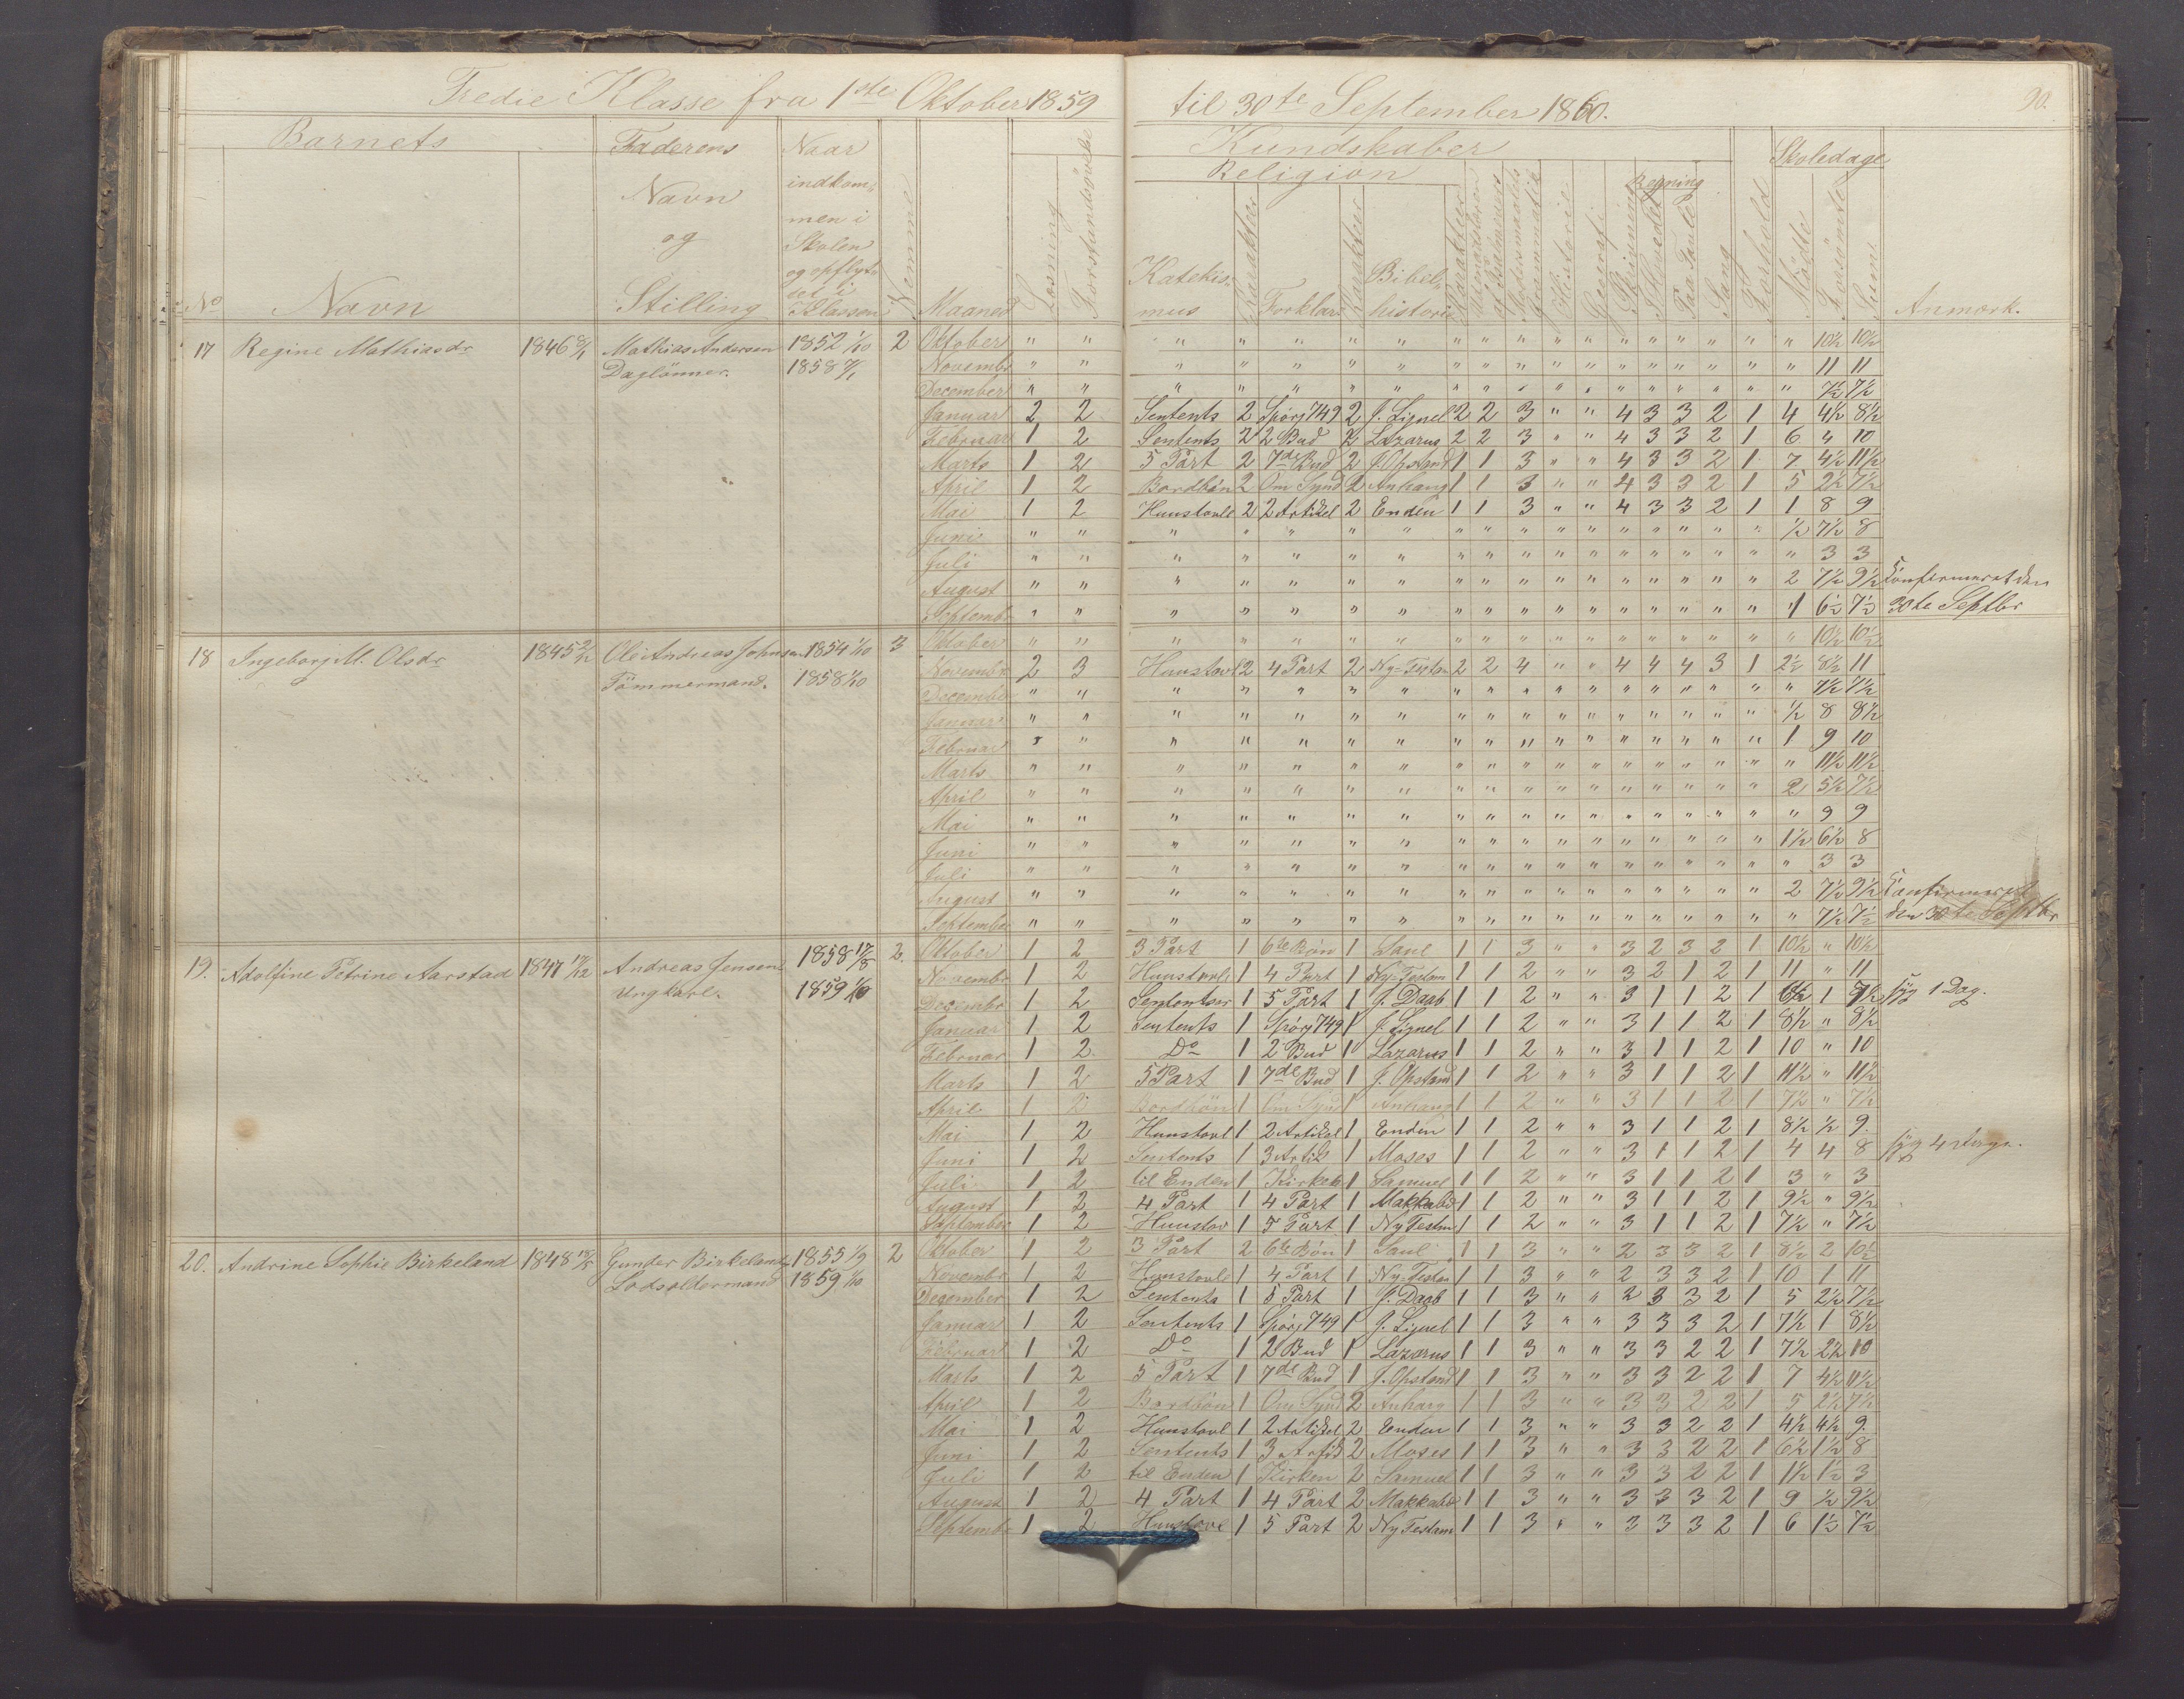 Tredie Klasse fra 1ste Oktober 1859 til 30te September 1860. 90.
Barnets Faderens Naar Kundskaber Skoledage
Religion Regning
Navn indkom-
og men i
Skolen
og opflyt-
tet i
No Navn Stilling Klassen Nemme Maaned Læsning Forstandsøvelse Katekis- Karakter Forklar Karakter Bibel- Karakter Historie Geografi Skrivning Paa Tavle Sang Forhold Mødte Forsømte Sum Anmærk.
mus historie
17 Regine Mathiasdr 1846 8/1 Mathias Andersen 1852 1/10 2 Oktober " " " " " " " " " " " " " " " " " " " 10½ 10½
Daglönner. 1858 7/1 Novembr " " " " " " " " " " " " " " " " " " " 11 11
December " " " " " " " " " " " " " " " " " " " 7½ 7½
Januar 2 2 Sentents 2 Spörj 749 2 J. Lignel 2 2 3 " " 4 3 3 2 1 4 4½ 8½
Februar 1 2 Sentents 2 2 Bud 2 Lazarus 2 2 3 " " 4 3 3 2 1 6 4 10
Marts 1 2 5 Part 2 7de Bud 2 J. Opstand 1 1 3 " " 4 3 3 2 1 7 4½ 11½
April 1 2 Bordbön 2 Om Synd 2 Anhang 1 1 3 " " 4 3 3 2 1 5 2½ 7½
Mai 1 2 Huustavle 2 2 Artikel 2 Enden 1 1 3 " " 4 3 3 2 1 1 8 9
Juni " " " " " " " " " " " " " " " " " " ½ 7½ 8
Juli " " " " " " " " " " " " " " " " " " " 3 3
August " " " " " " " " " " " " " " " " " " 2 7½ 9½ Konfirmeret den
Septembr " " " " " " " " " " " " " " " " " " 1 6½ 7½ 30te Septbr
18 Ingeborg M. Olsdr 1845 2/12 Ole Andreas Johnsen 1854 1/10 3 Oktober " " " " " " " " " " " " " " " " " " " 10½ 10½
Tömmermand. 1858 1/10 Novembr 2 3 Huustavl 2 4 Part 2 Ny-Testam 2 2 4 " " 4 4 4 3 1 2½ 8½ 11
December " " " " " " " " " " " " " " " " " " " 7½ 7½
Januar " " " " " " " " " " " " " " " " " " ½ 8 8½
Februar " " " " " " " " " " " " " " " " " " 1 9 10
Marts " " " " " " " " " " " " " " " " " " " 11½ 11½
April " " " " " " " " " " " " " " " " " " 2 5½ 7½
Mai " " " " " " " " " " " " " " " " " " " 9 9
Juni " " " " " " " " " " " " " " " " " " 1½ 6½ 8
Juli " " " " " " " " " " " " " " " " " " " 3 3
August " " " " " " " " " " " " " " " " " " 2 7½ 9½ Konfirmeret
September " " " " " " " " " " " " " " " " " " " 7½ 7½ den 30te Septbr
19. Adolfine Petrine Aarstad 1847 17/12 Andreas Jensen 1858 17/8 2. Oktober 1 2 3 Part 1 6te Bön 1 Saul 1 1 3 " " 3 2 3 2 1 10½ " 10½
Ungkarl. 1859 1/10 Novembr 1 2 Huustavle 1 4 Part 1 Ny-Testam 1 1 2 " " 3 2 1 2 1 11 " 11
Decembr 1 2 Sententser 1 5 Part 1 J. Daab 1 1 2 " " 3 1 1 2 1 6½ 1 7½ syg 1 Dag.
Januar 1 2 Sentents 1 Spörj 749 1 J. Lignel 1 1 2 " " 3 1 1 2 1 8½ " 8½
Februar 1 2 Do 1 2 Bud 1 Lazarus 1 1 2 " " 3 1 1 2 1 10 " 10
Marts 1 2 5 Part 1 7de Bud 1 J. Opstand 1 1 2 " " 3 1 1 2 1 11½ " 11½
April 1 2 Bordbön 1 Om Synd 1 Anhang 1 1 2 " " 3 1 1 2 1 7½ " 7½
Mai 1 2 Huustavl 1 2 Artikel 1 Enden 1 1 2 " " 3 1 1 2 1 8½ ½ 9.
Juni 1 2 Sentents 1 3 Artik 1 Moses 1 1 2 " " 3 1 1 2 1 4 4 8 syg 4
Juli 1 2 til Enden 1 Kirken 1 Samuel 1 1 2 " " 3 1 1 2 1 3 " 3
August 1 2 4 Part 1 4 Part 1 Makkabæ 1 1 2 " " 3 1 1 2 1 9½ " 9½
September 1 2 Huustav 1 5 Part 1 Ny Testm 1 1 2 " " 3 1 1 2 1 7½ " 7½
20. Andrine Sophie Birkeland 1848 15/5 Gunder Birkeland 1855 1/9 2 Oktober 1 2 3 Part 2 6te Bön 1 Saul 1 1 3 " " 2 3 3 2 1 8½ 2 10½
Lodsoldermand 1859 1/10 Novembr 1 2 Huustavle 1 4 Part 1 Ny-Testam 1 1 3 " " 2 3 3 2 1 10 1 11
December 1 2 Sentents 1 5 Part 1 J. Daab 1 1 3 " " 2 3 3 2 1 5 2½ 7½
Januar 1 2 Sentents 1 Spörj 749 1 J. Lignel 1 1 3 " " 3 3 3 2 1 7½ 1 8½
Februar 1 2 Do 1 2 Bud 1 Lazarus 1 1 3 " " 3 3 2 2 1 7½ 2½ 10
Marts 1 2 5 Part 1 7de Bud 1 J. Opstand 1 1 3 " " 3 3 2 2 1 7 4½ 11½
April 1 2 Bordbön 1 Om Synd 2 Anhang 1 1 3 " " 3 3 2 2 1 5 2½ 7½
Mai 1 2 Huustavl 1 2 Artikel 2 Enden 1 1 3 " " 3 3 2 2 1 4½ 4½ 9.
Juni 1 2 Sentents 1 3 Artik 2 Moses 1 1 3 " " 3 3 2 2 1 6½ 1½ 8
Juli 1 2 til Enden 1 Kirken 2 Samuel 1 1 3 " " 3 3 2 2 1 1½ 1½ 3
August 1 2 4 Part 1 4 Part 2 Makkabæ 1 1 3 " " 3 3 3 2 1 9 ½ 9½
Septembr 1 2 Huustavl 1 5 Part 2 Ny Testam 1 1 3 " " 3 3 3 2 1 6 1½ 7½